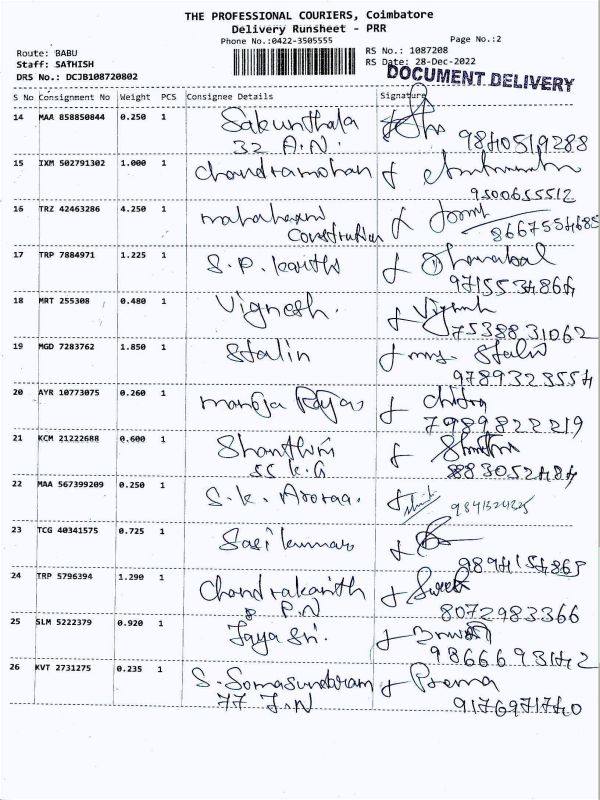 THE PROFESSIONAL COURIERS, Coimbatore
Delivery Runsheet - PRR
Phone No.:0422-3505555
Page No.:2
Route: BABU
RS No.: 1087208
Staff: SATHISH
RS Date: 28-Dec-2022
DRS No.: DCJB108720802
DOCUMENT DELIVERY
S No Consignment No Weight PCS Consignee Details Signature
14 MAA 858850844 0.250 1 Sakunthala
32 A.N. 9840519288
15 IXM 502791302 1.000 1 Chandramohan
9500655512
16 TRZ 42463286 4.250 1 mahalaxmi
Construction 8667554685
17 TRP 7884971 1.225 1 S.P. Dhanabal
9715534864
18 MRT 255308 0.480 1 Vignesh. Vignesh
7538831062
19 MGD 7283762 1.850 1 Stalin Stalin
9789323554
20 AYR 10773075 0.260 1 manoja Chitra
7989822219
21 KCM 21222688 0.600 1
55 K.G
22 MAA 567399209 0.250 1 S.K. Aroraa.
23 TCG 40341575 0.725 1 Sasikumar
9894154865
24 TRP 5796394 1.290 1 Chandrakanth
8 P.N 8072983366
25 SLM 5222379 0.920 1 Jaya Sri.
9866693142
26 KVT 2731275 0.235 1 S. Somasundaram Prema
77 J.N 9176971740